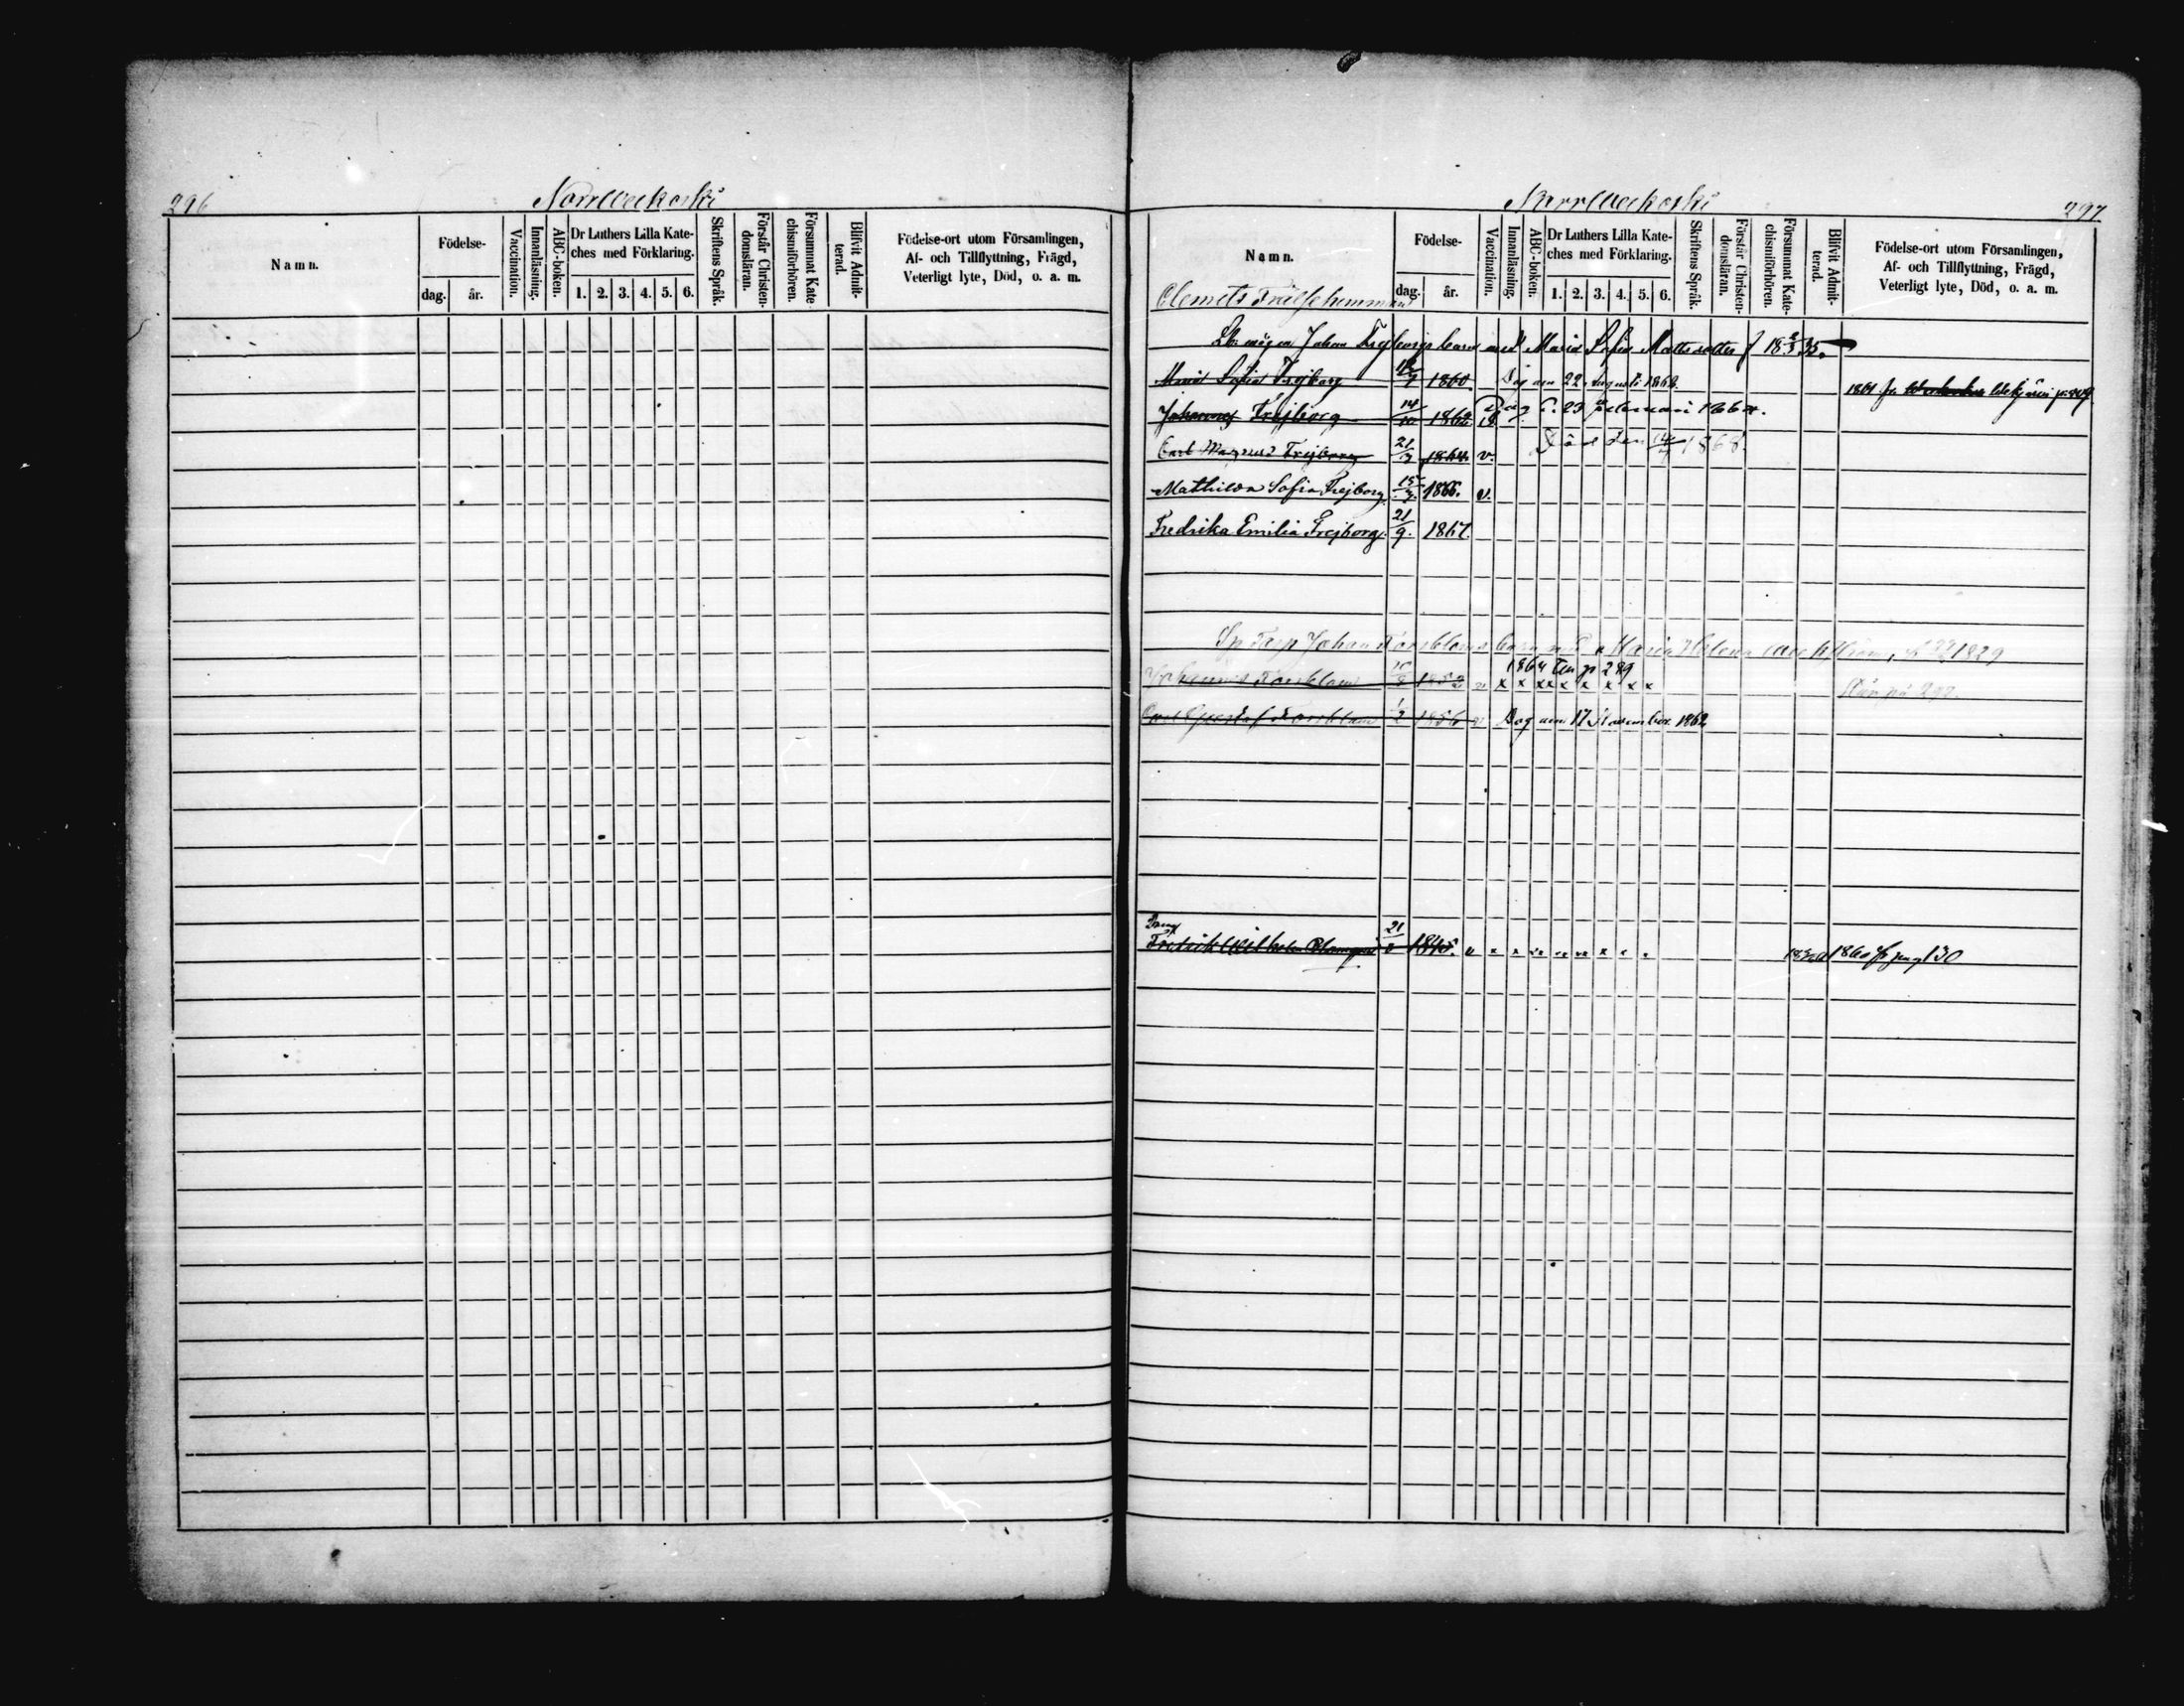 296
Norrveckoski
Namn.
Födelse-
dag.
år.
Vaccination.
Innanläsning.
ABC-boken.
Dr Luthers Lilla Kate-
ches med Förklaring.
1. 2. 3. 4. 5. 6.
Skriftens Språk.
Förstår Christen-
domsläran.
Försummat Kate-
chismiförhören.
Blifvit Admit-
terad.
Födelse-ort utom Församlingen,
Af- och Tillflyttning, Frägd,
Veterligt lyte, Död, o. a. m.
Norrveckoski
297
Namn.
Födelse-
dag.
år.
Vaccination.
Innanläsning.
ABC-boken.
Dr Luthers Lilla Kate-
ches med Förklaring.
1. 2. 3. 4. 5. 6.
Skriftens Språk.
Förstår Christen-
domsläran.
Försummat Kate-
chismiförhören.
Blifvit Admit-
terad.
Födelse-ort utom Församlingen,
Af- och Tillflyttning, Frägd,
Veterligt lyte, Död, o. a. m.
Clemets Frälsehemman
Johan Frejborgs barn med Maria Sofia Mattsdotter f 18 35.
Maria Sofia Frejborg 1860. Dog den 22 Augusti 1862.
1861 fr.
Johannes Frejborg 14/10 1862 Dog d. 23 Februari
Carl Magnus Frejborg 21/3 1864. v. Död den 1868.
Mathilda Sofia Frejborg 1866. v.
Fredrika Emilia Frejborg. 21/9. 1867.
Johan Forsbloms barn med Maria Helena 1829
1864 p 289
Johannes Forsblom v x x x x x x x x x
Carl Gustaf Forsblom 1/2 1856 v Dog den 17 November 1862
Dreng
Fredrik Wilhelm 21 1845. v x x x x
1860 fr pag 130